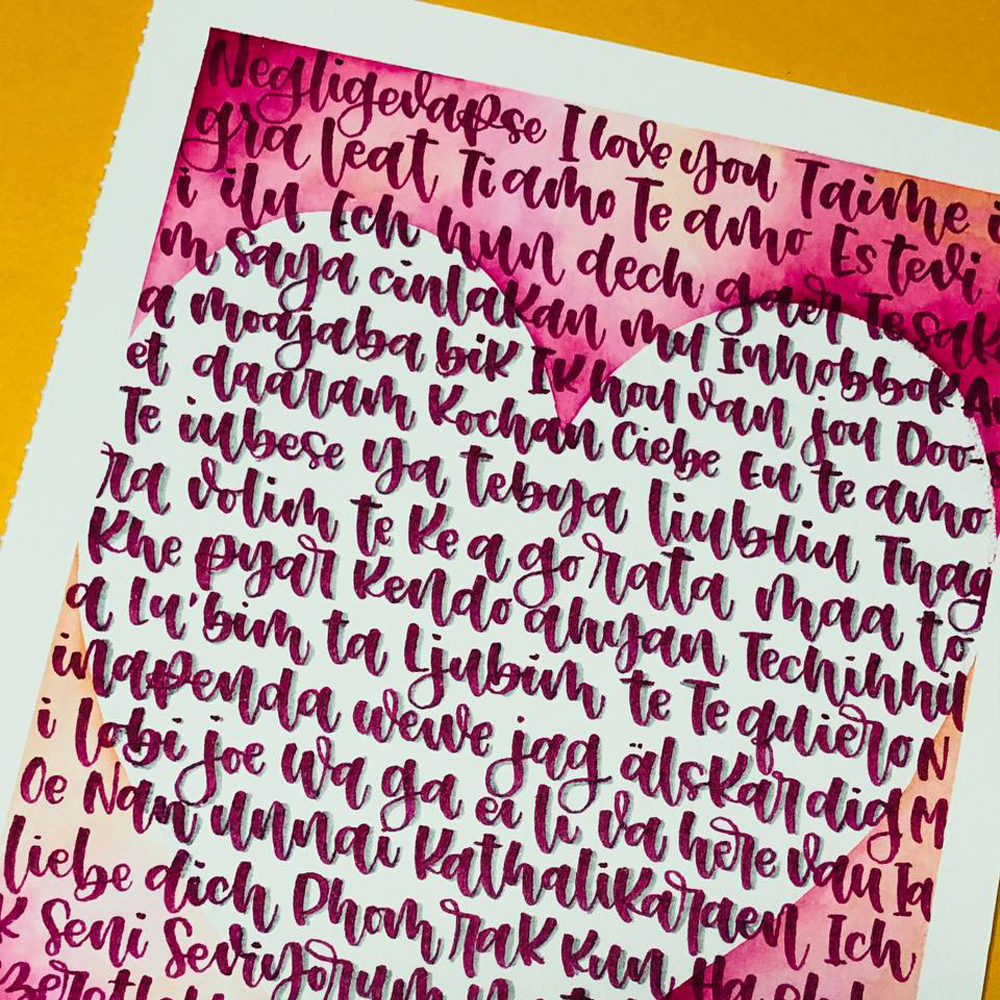 Negligevapse I love you Taime i
gra leat Ti amo Te amo Es tevi
i ilu Ech hun dech gaer Te sak
m Saya cintakan mu Inhobbok A
a moajaba bik Ik hou van jou Doo-
et daaram Kochan Ciebe Eu te amo
Te iubese ya tebya liubliu Thag
ra volim te Ke a go rata maa to
Khe pyar Kendo ahyan Techihhil
a lu'bim ta Ljubim te Te quiero N
inapenda wewe jag älskar dig M
i lobi joe wa ga ei li va here vau Ia
Oe Nan unnai Kathalikaraen Ich
liebe dich Phom rak kun
k Seni Seviyorum